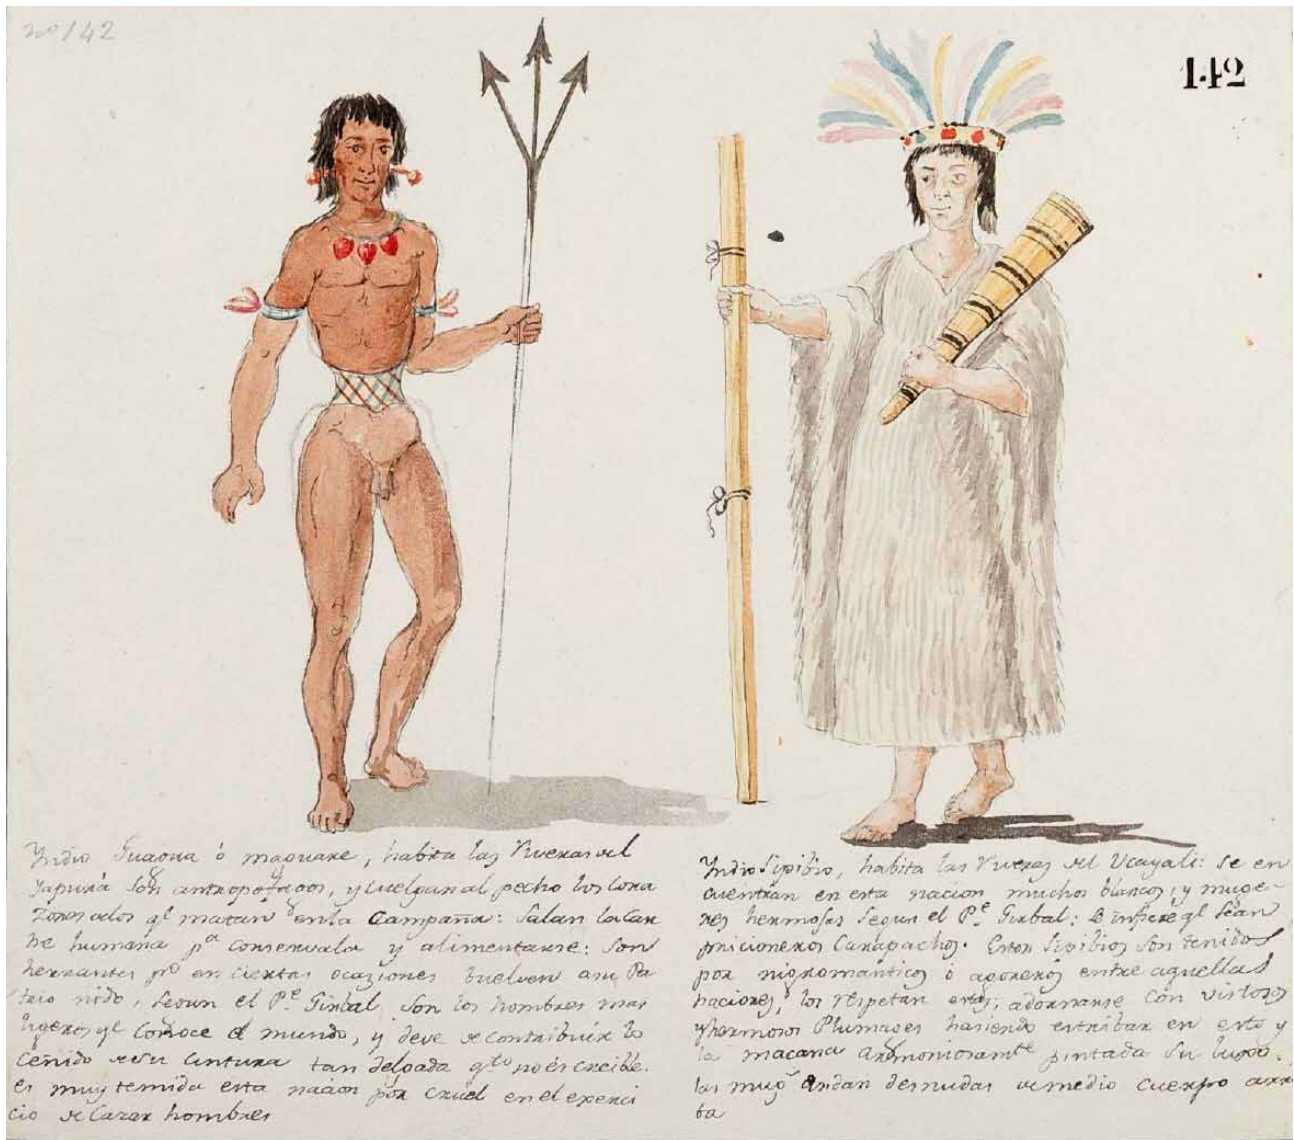 no 142
142
Yndio Guaqua ó maguare, habita las Riveras del
Yapurá son antropófagos, y cuelgan al pecho los cora
zones de los ql matan en la Campaña: Salan la car
ne humana pa conservala y alimentarse: son
herrantes po en ciertas ocaziones buelven a su Pa
trio nido, segun el Pe Girbal, son los hombres mas
ligeros ql conoce el mundo, y deve de contribuir lo
ceñido de su cintura tan delgada qto no és creible.
es muy temida esta nacion por cruel en el exerci
cio de Cazar hombres
Yndio Sipibio, habita las Riveras del Ucayali: Se en
cuentran en esta nacion muchos blancos, y muge-
res hermosas segun el Pe Girbal: Se infiere ql sean
pricioneros Carapachos. Estos Sipibios son tenidos
por nigromanticos ó agoreros entre aquellas
naciones, los respetan estas, adornanse con vistosos
y hermosos Plumages haciendo estribar en esto y
la macana armoniosamte pintada su lujo.
las mugs andan desnudas de medio cuerpo arri
ba